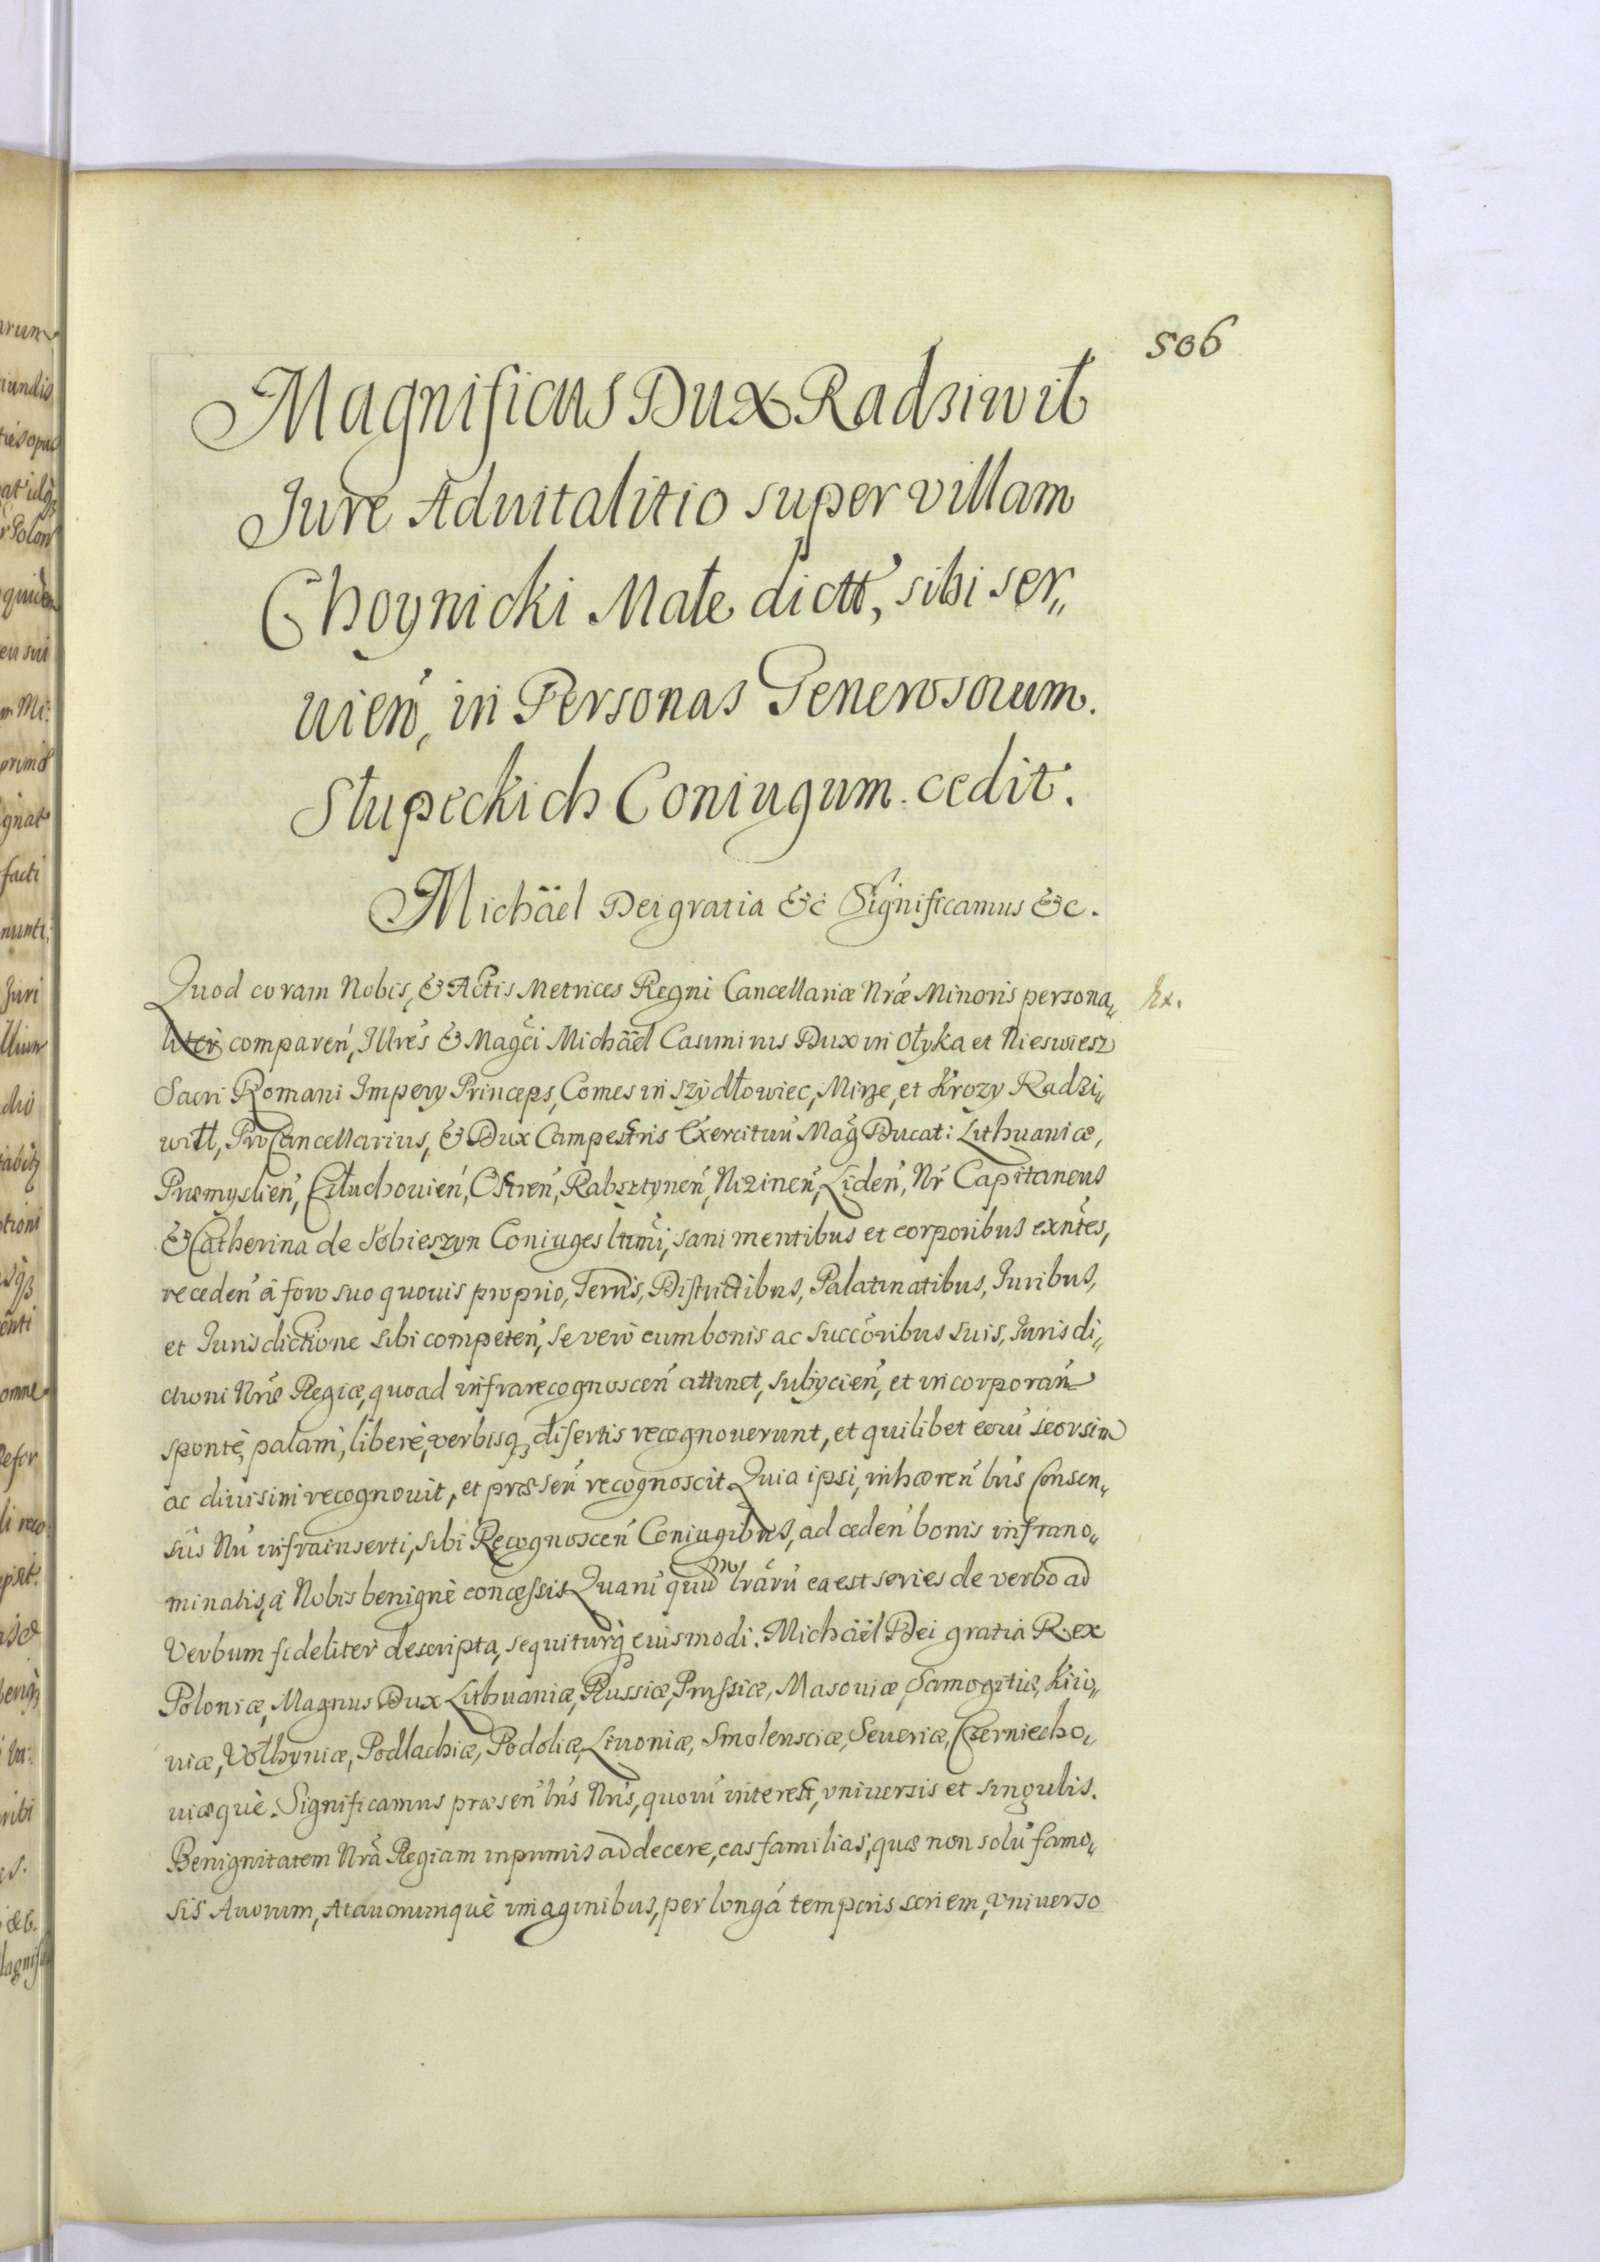 506
Magnificus Dux Radziwił
Jure Aduitalitio super villam
Choynicki Małe dictt, sibi ser„
uień, in Personas Generosorum.
Słupeckich Coniugum. cedit.
Michäel Dei gratia &c Significamus &c.
Quod coram Nobis, & Actis Metrices Regni Cancellariæ Nræ Minoris persona„
liter comparen, Illres & Magci Michäel Casimirus Dux in Ołyka et Nieswiesz
Sacri Romani Impery Princeps, Comes in Szydłowiec, Mirze, et Krozy Radzi„
wiłł, ProCancellarius, & Dux Campestris Exercituu Mag Ducat: Lithuaniæ,
Præmyslien, Człuchouien, Ostren, Rabsztynen, Nizinen, Liden, Nr Capitaneus
& Catherina de Sobieszyn Coniuges lttmi, sani mentibus et corporibus exntes,
receden á foro suo quouis proprio, Terris, Districtibus, Palatinatibus, Juribus,
et Jurisdictione sibi competen, se vero cum bonis ac succoribus suis, Jurisdi„
ctioni Nræ Regiæ, quoad infra recognoscen attinet, subycien, et incorporan
spontè, palam, liberè, verbisq disertis recognouerunt, et quilibet eoru seorsim
ac diuisim recognouit, et præsen recognoscit. Quia ipsi, inhæren lris Consen„
sûs Nri infrainserti, sibi Recognoscen Coniugibus, ad ceden bonis infrano„
minatis, à Nobis benignè concessis Quaru quid lraru ea est series de verbo ad
Verbum fideliter descripta, sequiturq eiusmodi. Michäel Dei gratia Rex
Poloniæ, Magnus Dux Lithuaniæ, Russiæ, Prussiæ, Masouiæ, Samogitiæ, Kiio„
uiæ, Vołhyniæ, Podlachiæ, Podoliæ, Liuoniæ, Smolensciæ, Seueriæ, Czerniecho„
uiæquè. Significamus præsen lris Nris, quoru interest, vniuersis et singulis.
Benignitatem Nrã Regiam inprimis addecere, eas familias, quæ non solu famo„
sis Auorum, Atauorumquè imaginibus, per longá temporis seriem, vniuerso